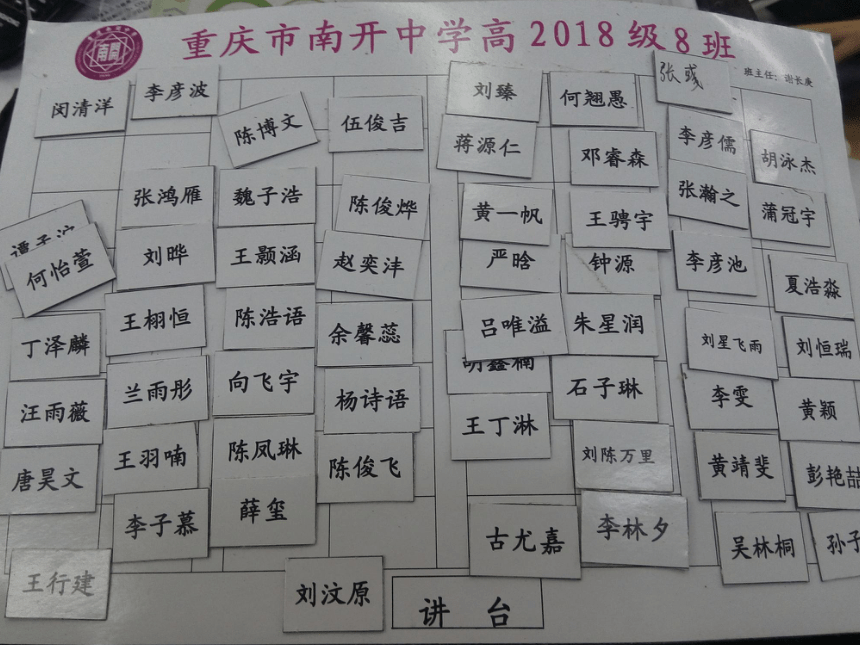 重庆市南开中学高2018级8班
班主任：谢长庚
南開
闵清洋 李彦波 陈博文 伍俊吉 刘臻 何翘愚 张彧
蒋源仁 邓睿森 李彦儒 胡泳杰
张鸿雁 魏子浩 陈俊烨 黄一帆 王骋宇 张瀚之 蒲冠宇
何怡萱 刘晔 王颢涵 赵奕沣 严晗 钟源 李彦池 夏浩淼
丁泽麟 王栩恒 陈浩语 余馨蕊 吕唯溢 朱星润 刘星飞雨 刘恒瑞
汪雨薇 兰雨彤 向飞宇 杨诗语 胡鑫楠 石子琳 李雯 黄颖
唐昊文 王羽喃 陈凤琳 陈俊飞 王丁淋 刘陈万里 黄靖斐 彭艳喆
李子慕 薛玺 古尤嘉 李林夕 吴林桐 孙子
王行建 刘汶原 讲 台